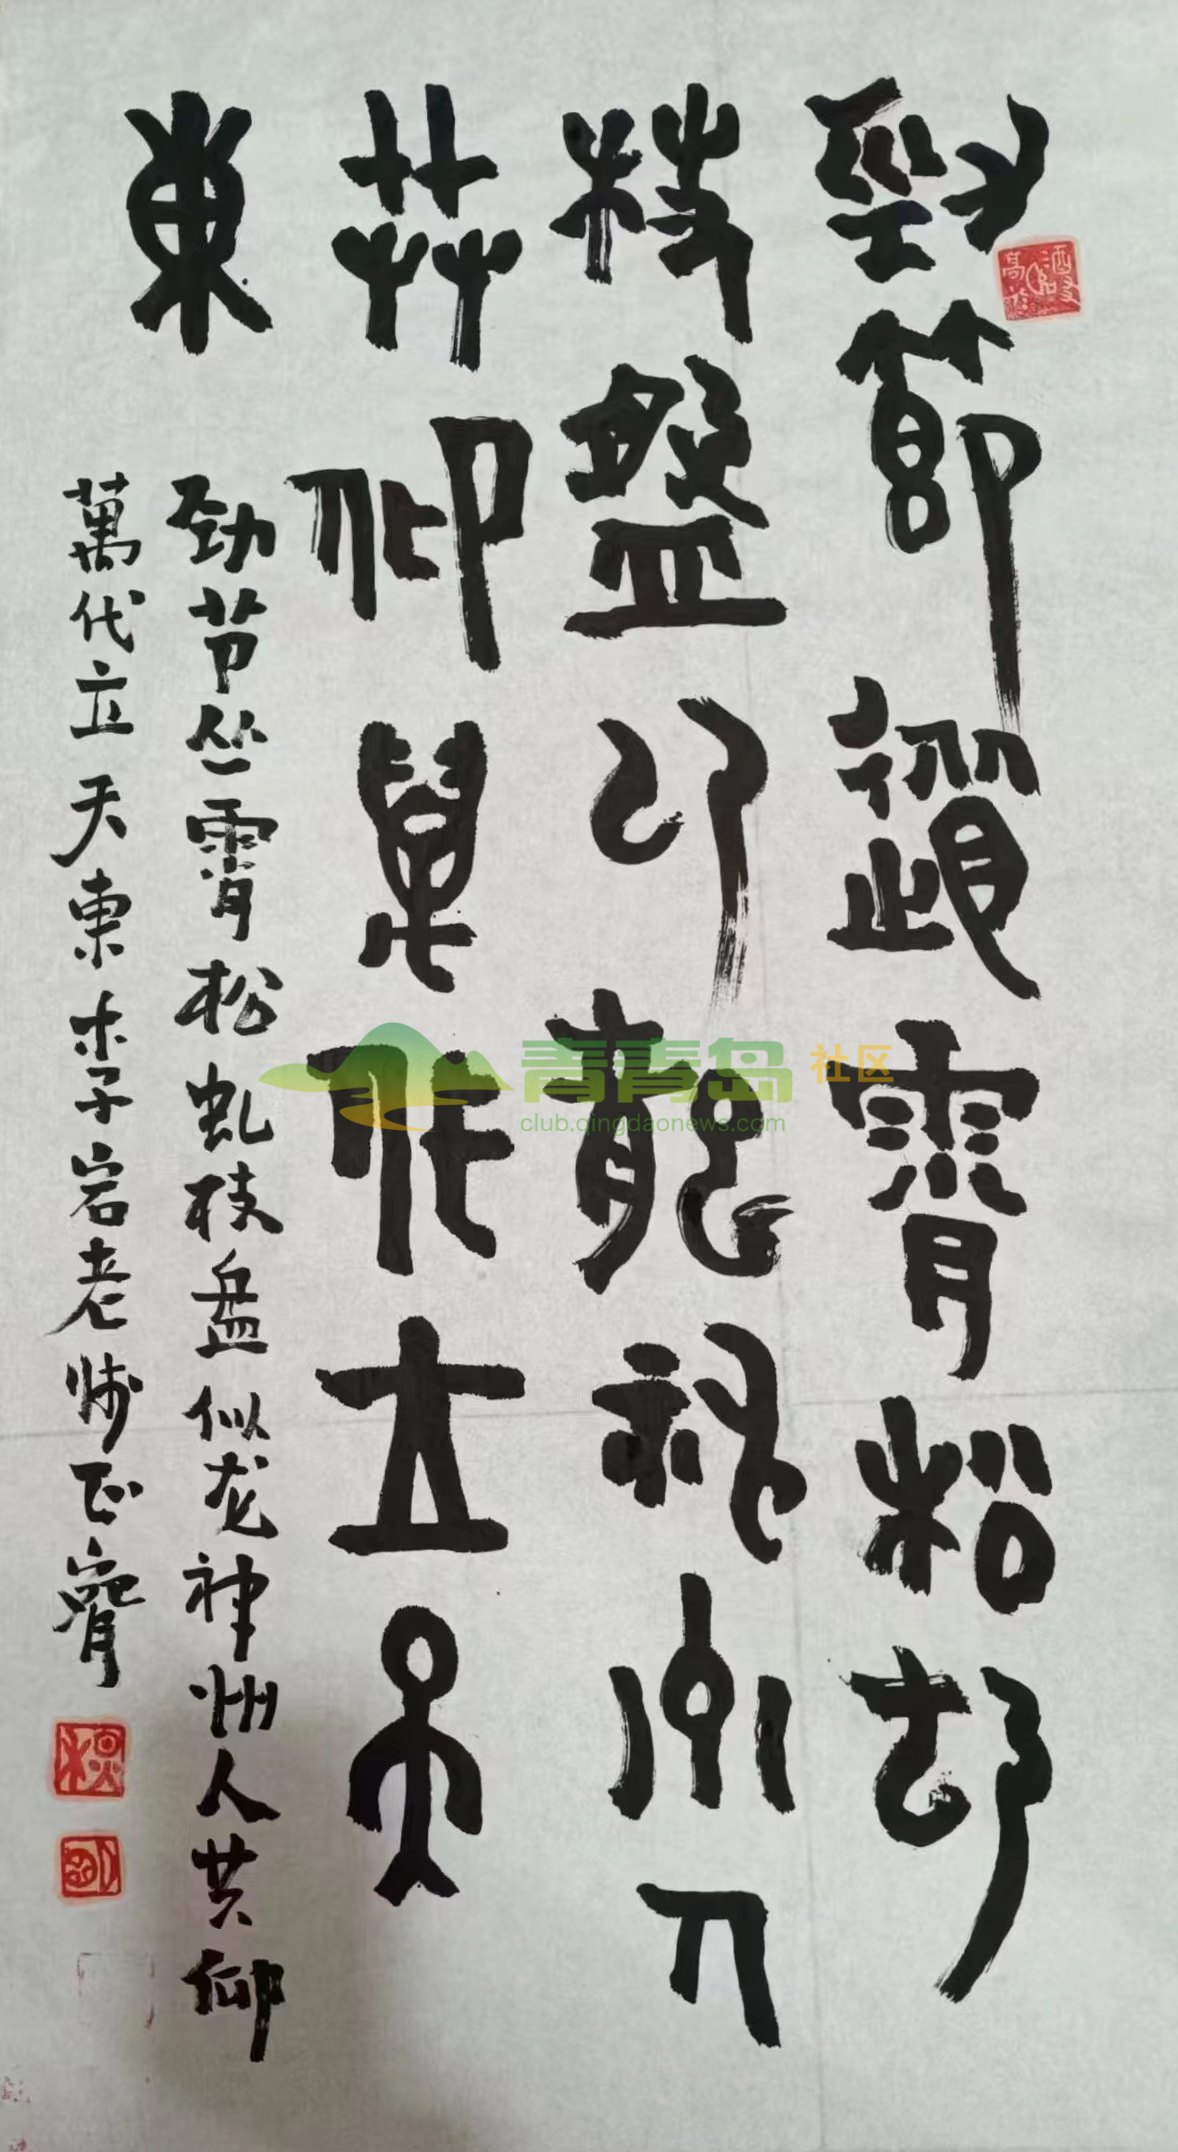 勁節霄松虬
枝盤㠯龍神州人
共仰萬代立天
東
劲节丛霄松虬枝盘似龙神州人共仰
萬代立天東李子岩老师正
青青岛社区
club.qingdaonews.com